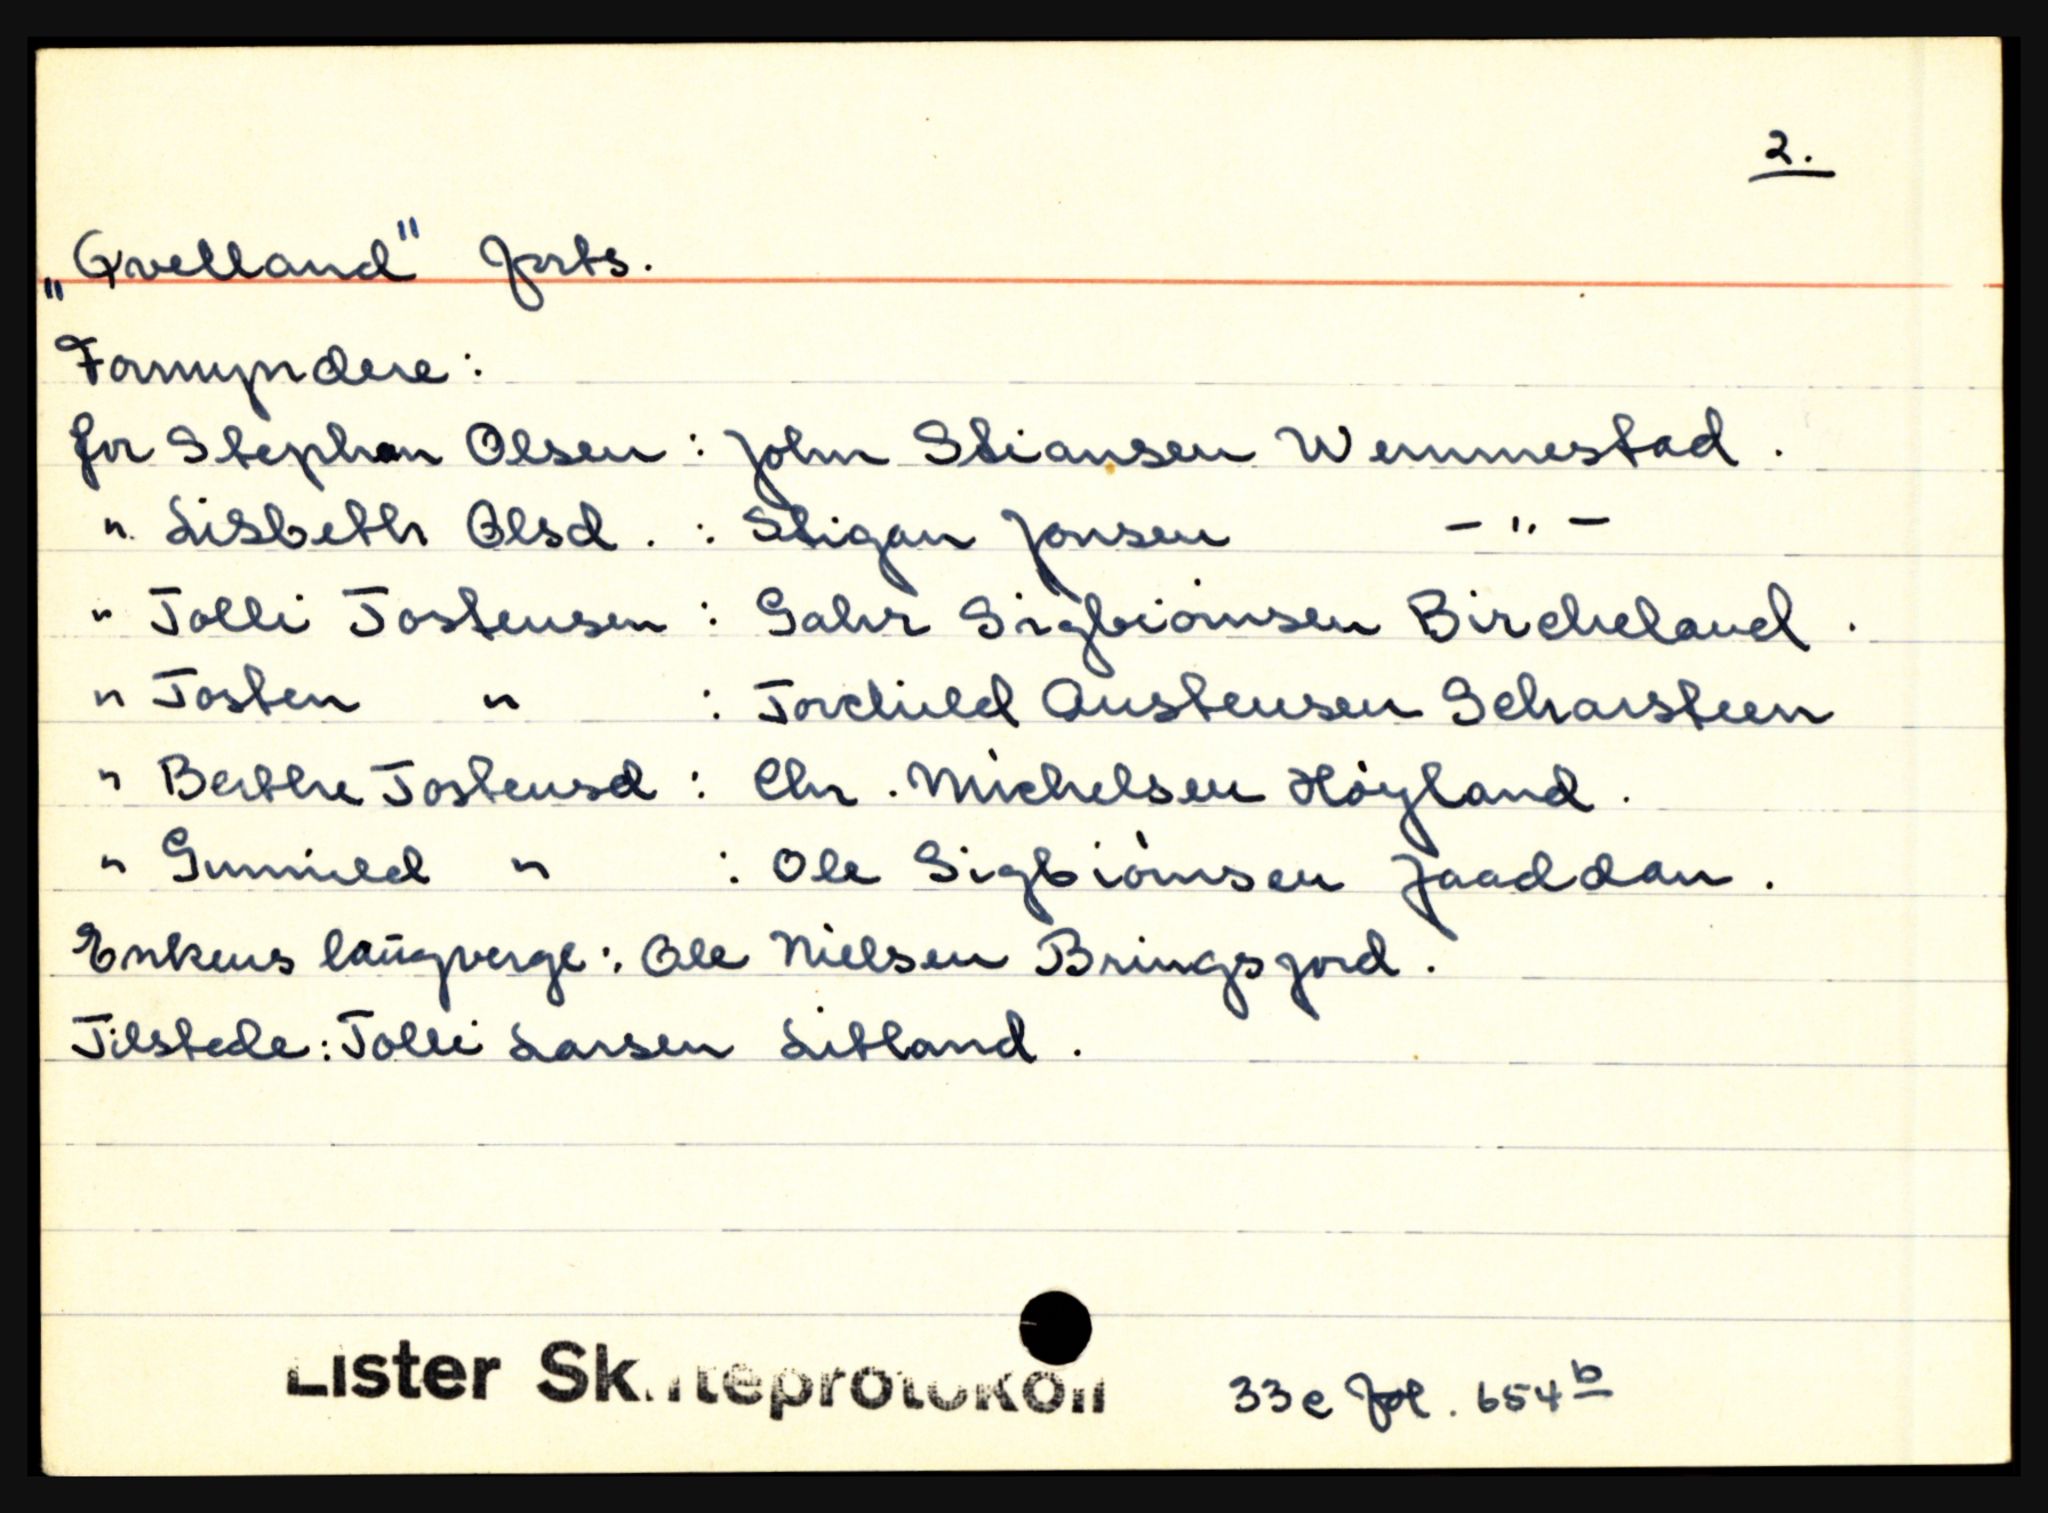 2.
„Qvelland" forts.
Formyndere:
for Stephen Olsen : John Stiansen Wemmestad .
" Lisbeth Olsd . : Stigan Jonsen - " -
" Tolli Tostensen : Gahr Sigbiørnsen Bircheland .
" Tosten " : Torchild Austensen Scharsteen
" Berthe Tostensd : Chr . Michelsen Høyland .
" Gunnild " : Ole Sigbiørnsen Jaaddan .
Enkens laugverge : Ole Nielsen Bringsjord .
Tilstede : Tolli Larsen Litland .
Lister Skifteprotokoll 33 c fol . 654 b